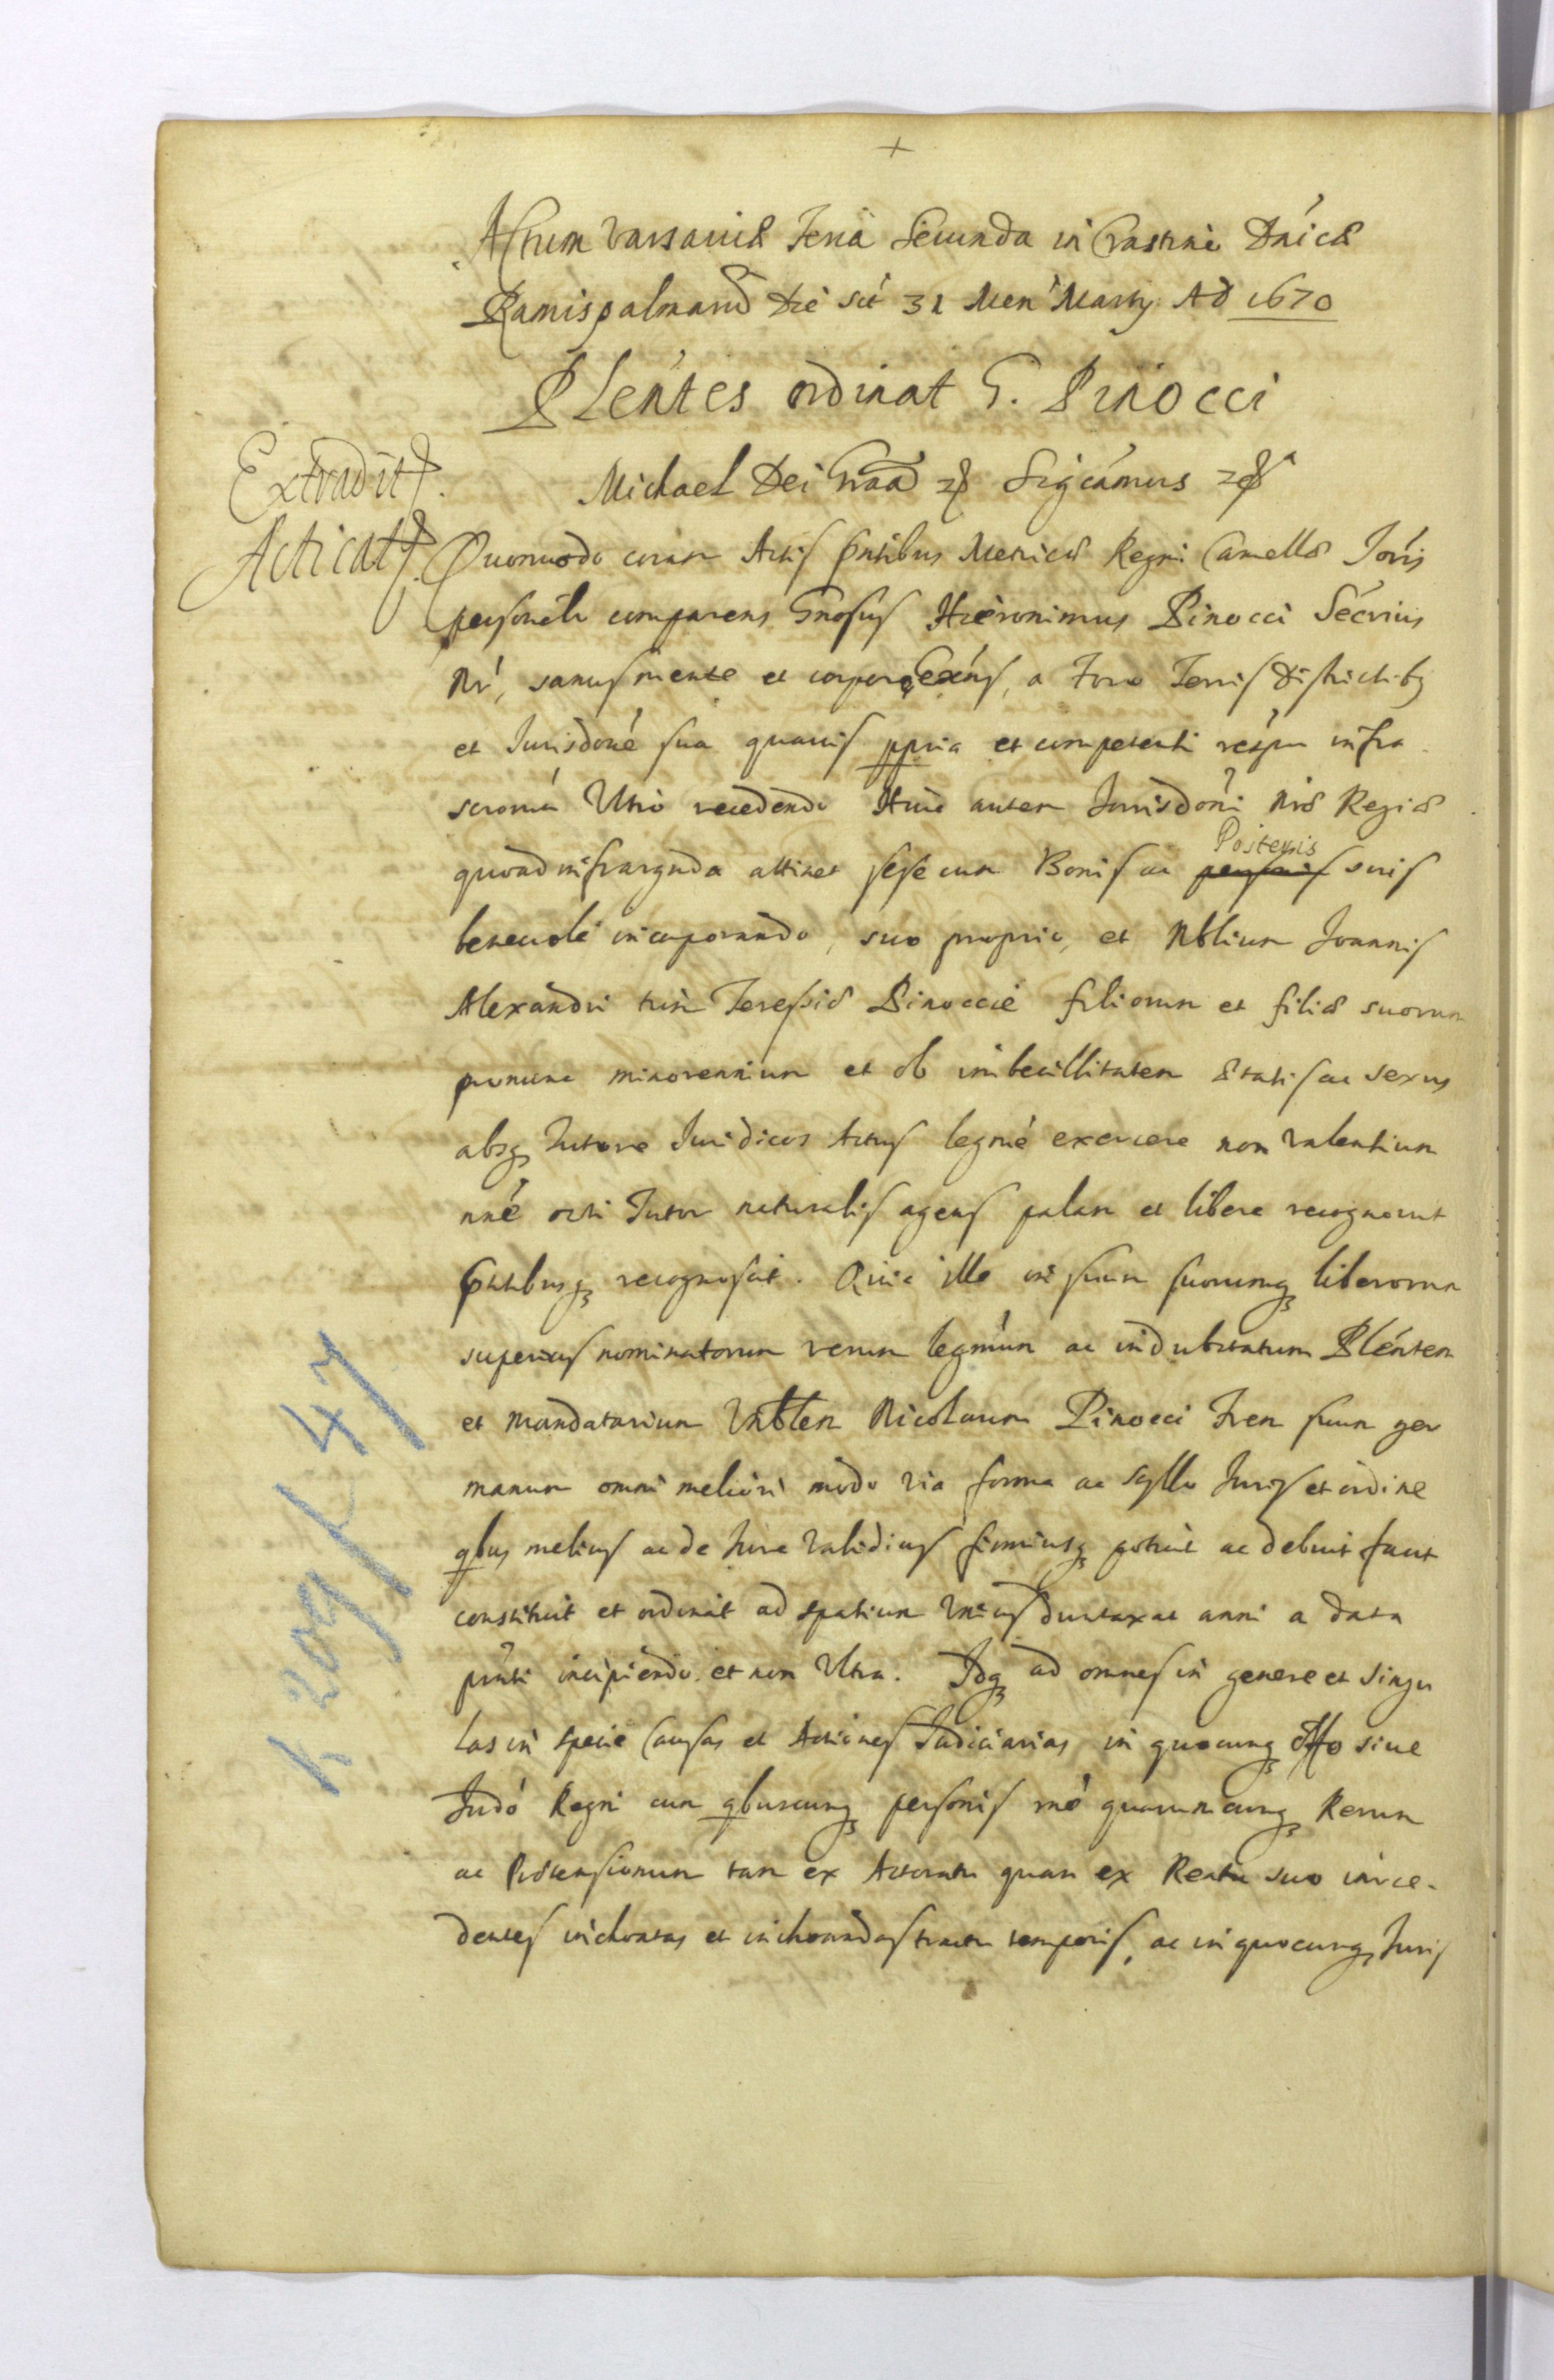 Actum Varsaviæ Feria Secunda in Crastino Dnicæ
Ramispalmarũ Die scĩt 31 Men Martij AD 1670
Plentes ordinat G. Pinocci
Extradit.
Michael Dei Graã &c Sigcamus &c
Acticat.
Quomodo coram Actis Pntibus Metrices Regni Cancellæ Joris
personalr comparens Gnosus Hieronimus Pinocci Secrius
Nr, sanus mente et corpore Exens, a Foro Terris Districtibq
et Jurisdone sua quavis ppria et competenti respu infra
scrorum Utro recedendo Huic autem Jurisdoni Nræ Regiæ
quoad infrargnda attinet sese cum Bonis ac Posteris suis
benevole incorporando, suo proprio, et Nblium Joannis
Alexandri tum Teressiæ Pinoccie filiorum et filiæ suorum
pronunc minorennium et ob imbecillitatem ætatis ac sexus
absq Tutore Juridicos Actus legme exercere non valentium
nne ceti Tutor naturalis agens palam et libere recognovit
Pntibusq recognoscit. Quia ille in suum suorumq liberorum
superius nominatorum verum legmum ac indubitatum Plentem
et Mandatarium Vnblem Nicolaum Pinocci Frem suum ger
manum omni meliori modo via forma ac stylo Juris et ordine
qbus melius ac de Jure validius firmiusq potuit ac debuit facit
constituit et ordinat ad spatium Unius duntaxat anni a data
pnti incipiendo et non Ultra. Idq ad omnes in genere et singu
las in specie Causas et Actiones Judiciarias in quocunq Offo sive
Judo Regni cum qbuscunq personis rnõ quarumcunq Rerum
ac Prætensionum tam ex Actoratu quam ex Reatu suo ince-
dentes inchoatas et inchoandas tractu temporis, ac in quocunq Juris
K 209 k 47